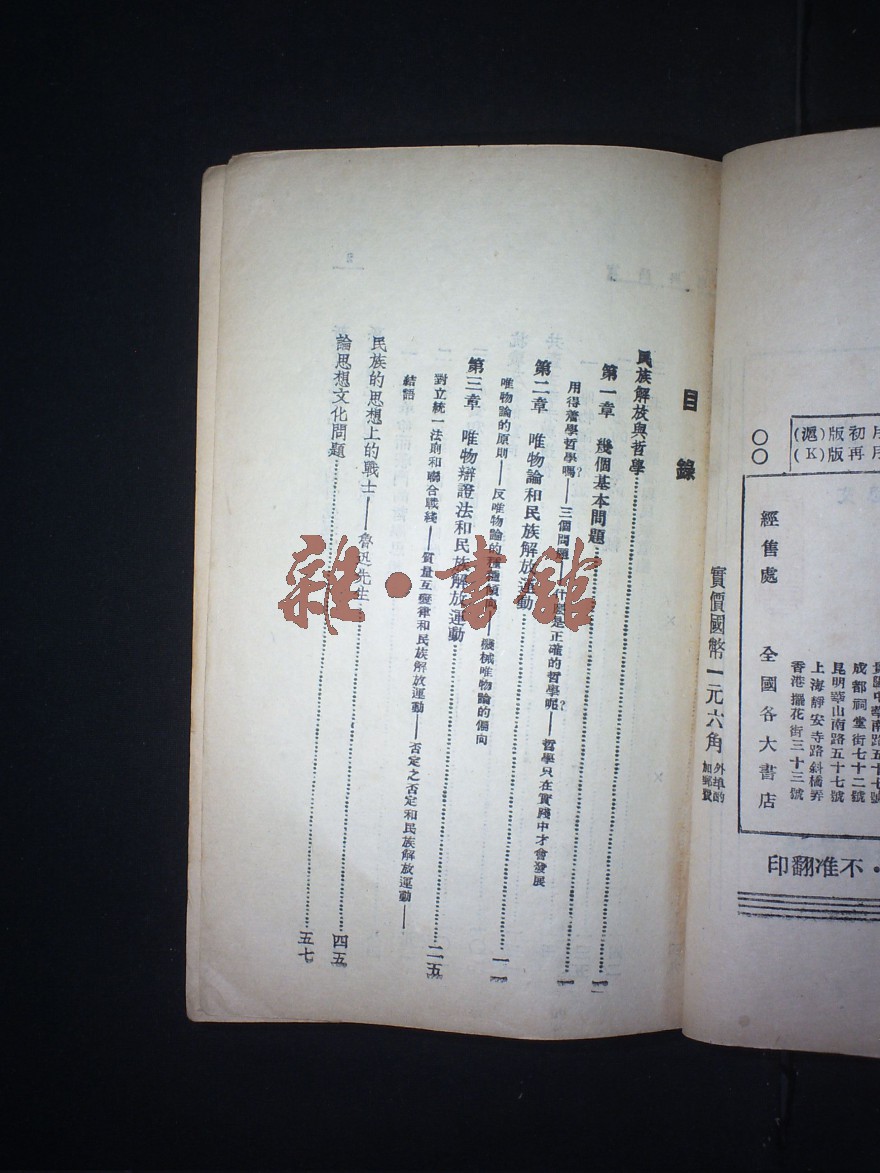 目錄
民族解放與哲學……一
第一章 幾個基本問題……一
用得着學哲學嗎?——三個問題——什麼是正確的哲學呢?——哲學只在實踐中才會發展
第二章 唯物論和民族解放運動……一一
唯物論的原則——反唯物論的種種傾向——機械唯物論的偏向
第三章 唯物辯證法和民族解放運動……二五
對立統一法則和聯合戰綫——質量互變律和民族解放運動——否定之否定和民族解放運動——
結語
民族的思想上的戰士——魯迅先生……四五
論思想文化問題……五七
雜·書館
(滬)版初
(K)版再
經售處 全國各大書店
成都祠堂街七十二號
昆明華山南路五十七號
上海靜安寺路斜橋弄
香港擺花街三十三號
實價國幣一元六角 外埠酌加郵費
·不准翻印